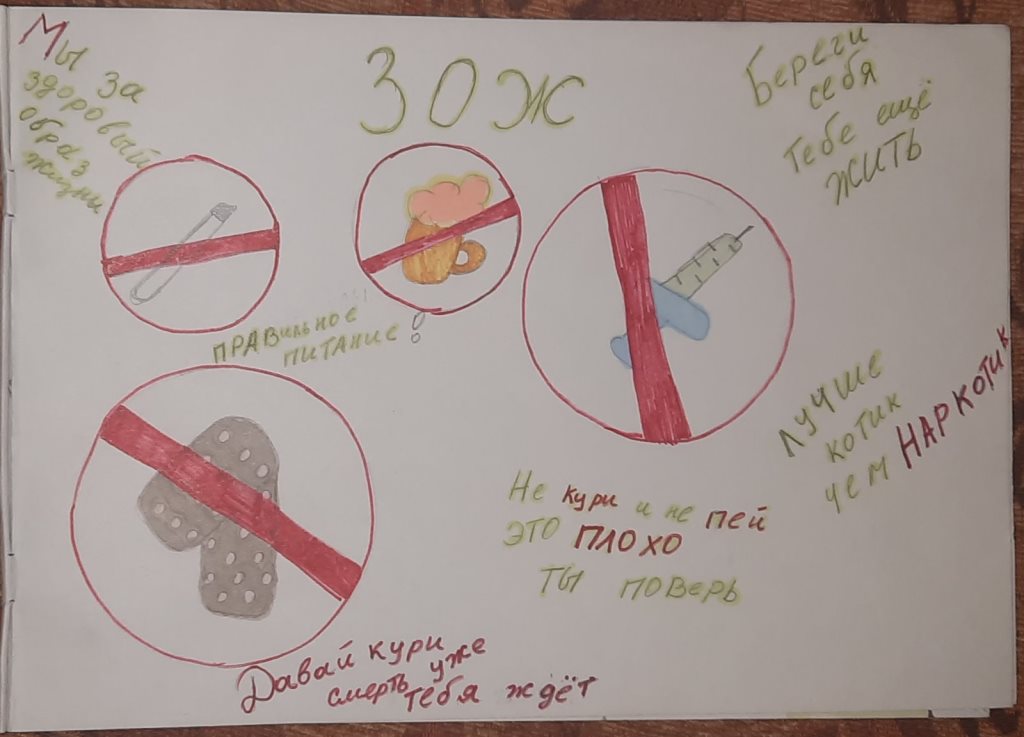 Мы за
здоровый
образ
жизни
ЗОЖ
Береги
себя
Тебе ещё
ЖИТЬ
ПРАВильное
ПИТАНИЕ !
ЛУЧШЕ
КОТИК
ЧЕМ НАРКОТИК
Не кури и не ПЕЙ
ЭТО ПЛОХО
ТЫ ПОВЕРЬ
Давай кури
смерть уже
тебя ждёт